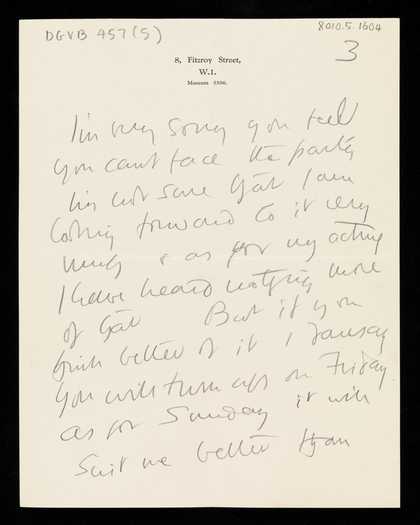 DGVB 457 (5)
8010.5.1604
3
8, Fitzroy Street,
W.1.
Museum
I'm very sorry you feel
you cant face the party
Im not sure that I am
looking forward to it very
much & as for my acting
I have heard nothing more
of that But if you
think better of it I daresay
you will turn up on Friday
as for Sunday it will
suit me better than